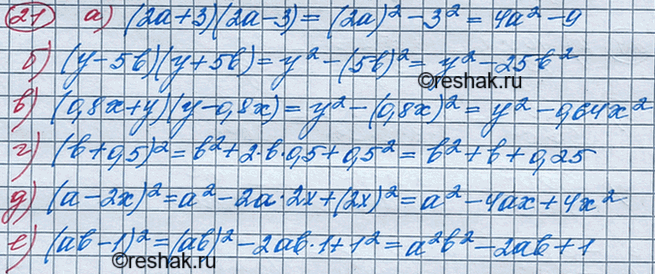 21 а) (2a+3)(2a-3) = (2a)² - 3² = 4a² - 9
б) (y-5b)(y+5b) = y² - (5b)² = y² - 25b²
©reshak.ru
в) (0,8x+y)(y-0,8x) = y² - (0,8x)² = y² - 0,64x²
г) (b+0,5)² = b² + 2·b·0,5 + 0,5² = b² + b + 0,25
д) (a-2x)² = a² - 2a·2x + (2x)² = a² - 4ax + 4x²
е) (ab-1)² = (ab)² - 2ab·1 + 1² = a²b² - 2ab + 1
©reshak.ru